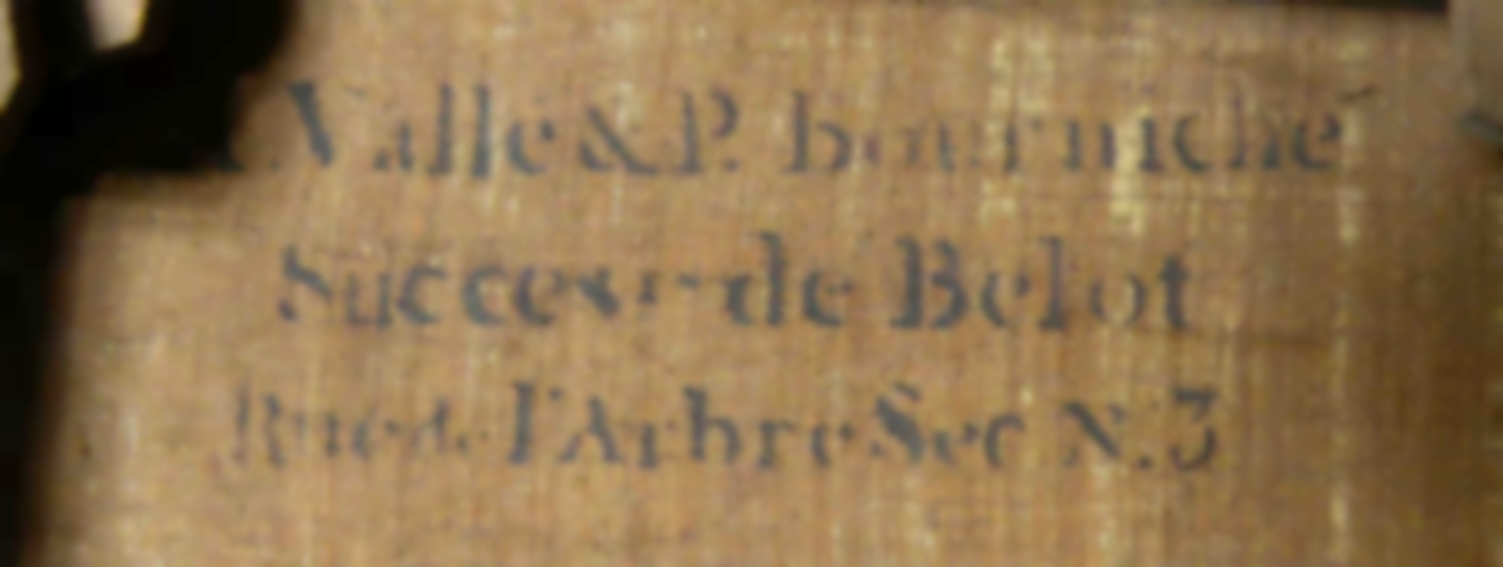 Vallé & P. Bourniché
Success.rs de Belot
Rue de l'Arbre Sec N. 3